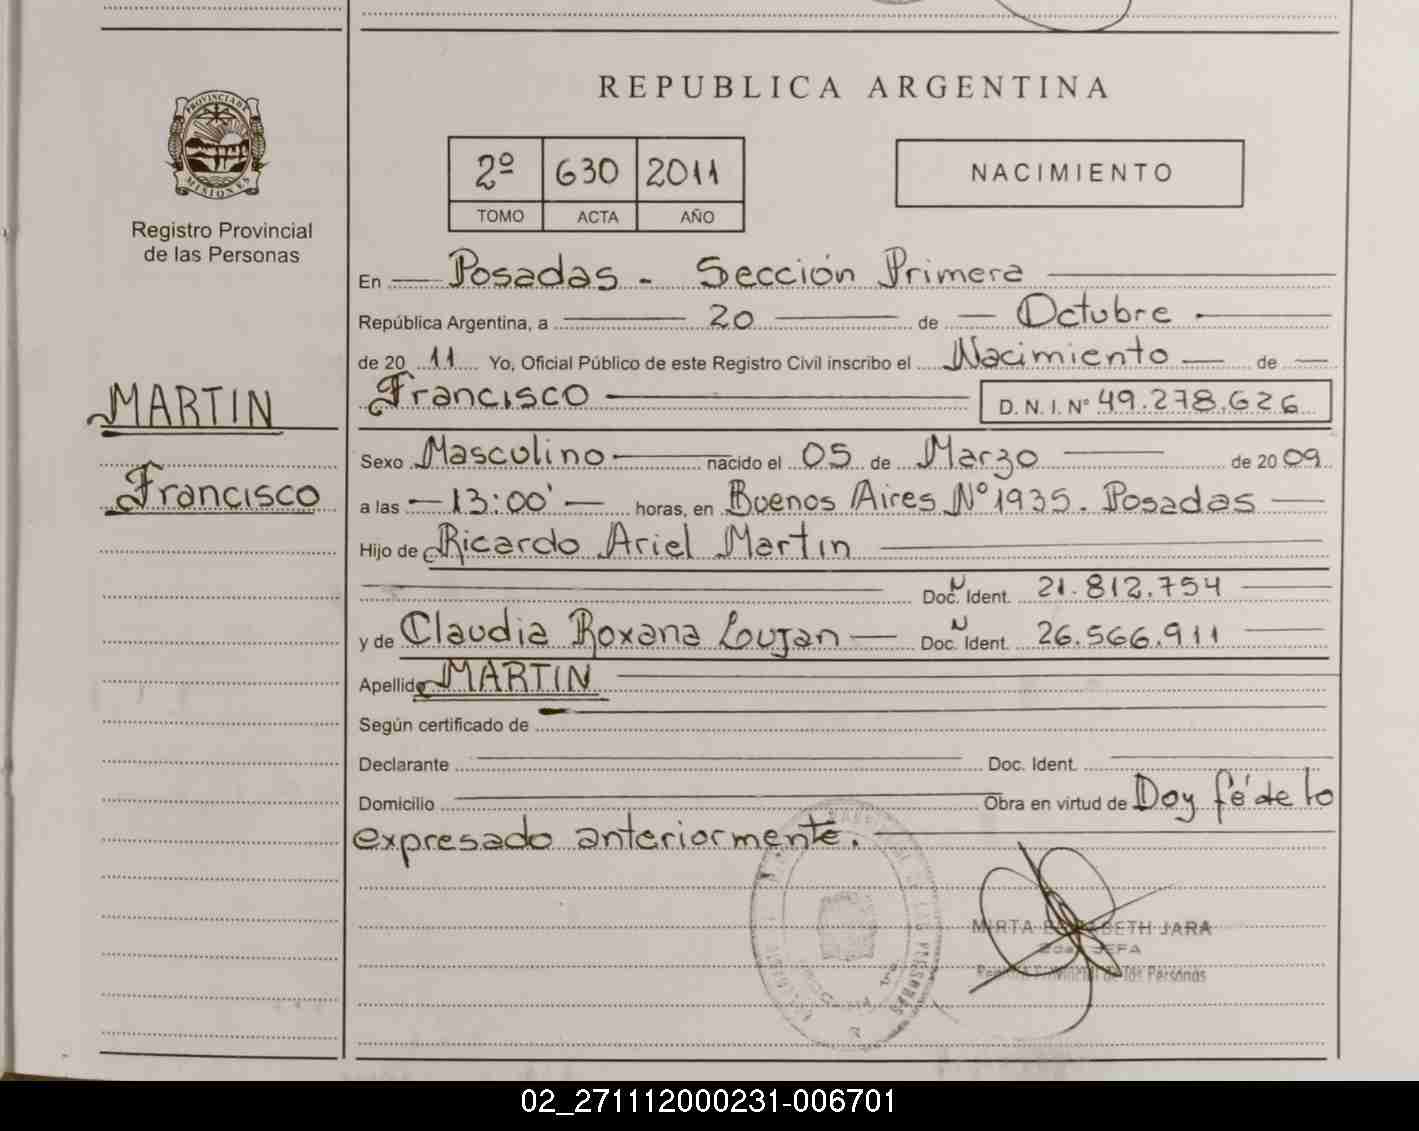 REPUBLICA ARGENTINA
PROVINCIA DE
MISIONES
Registro Provincial
de las Personas
2º 630 2011
TOMO ACTA AÑO
NACIMIENTO
En Posadas - Sección Primera
República Argentina, a 20 de Octubre
de 20 11 Yo, Oficial Público de este Registro Civil inscribo el Nacimiento de
MARTIN
Francisco
Francisco D.N.I. Nº 49.278.626
Sexo Masculino nacido el 05 de Marzo de 20 09
a las 13:00' horas, en Buenos Aires Nº 1935. Posadas
Hijo de Ricardo Ariel Martin
Doc. N Ident. 21.812.754
y de Claudia Roxana Lujan Doc. N Ident. 26.566.911
Apellido MARTIN
Según certificado de
Declarante Doc. Ident.
Domicilio Obra en virtud de Doy fé de lo
expresado anteriormente.
MIRTA JARA
JEFA
de las Personas
02_271112000231-006701